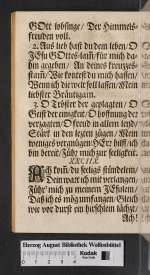 GOtt lobsinge/ Der Himmels-
freuden voll.
2. Aus lieb hast du dein leben/ O
JEsu GOttes-lam/ für mich da-
hin gegeben/ An deines kreuzes-
stam. Wie kontest du mich hassen/
Wenn ich dir welt soll lassen/ Mein
liebster Bräutigam.
3. O Tröster der geplagten/ O
Geist der einigkeit/ O hoffnung der
verzagten/ O freud in allem leid/
Stärk in den letzten zügen/ Mein
weniges vergnügen/ hilf/ ich
bin bereit/ Führ mich zur seligkeit.
Ach das du selags stündelein/
Den wart ich mit verlangen/
Führ' mich zu meinem JEsulein/
Daß ich es mög umfangen/ Gleich
wie vor durst ein hirschlein lächzt/
Ach!
Herzog August Bibliothek Wolfenbüttel
Kodak